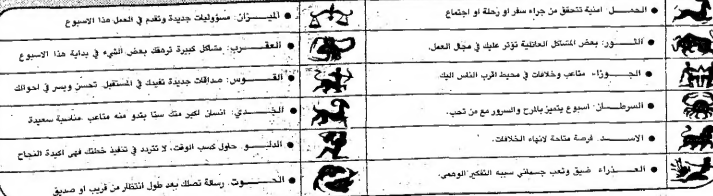 ● الحمـــل: امنية تتحقق من جراء سفر او رحلة او اجتماع
● الثـــور: بعض المشاكل العائلية تؤثر عليك في مجال العمل.
● الجـــوزاء: متاعب وخلافات في محيط اقرب الناس اليك
● السرطـــان: اسبوع يتميز بالمرح والسرور مع من تحب.
● الاســـد: فرصة متاحة لانهاء الخلافات.
● العـــذراء: ضيق وتعب جسماني سببه التفكير الوهمي.
● الميـــزان: مسؤوليات جديدة وتقدم في العمل هذا الاسبوع
● العقـــرب: مشاكل كبيرة ترهقك بعض الشيء في بداية هذا الاسبوع
● القـــوس: صداقات جديدة تفيدك في المستقبل. تحسن ويسر في احوالك
● الجـــدي: انسان اكبر منك سنا يبدو منه متاعب. مناسبة سعيدة
● الدلـــو: حاول كسب الوقت. لا تتردد في تنفيذ خطتك فهي اكيدة النجاح
● الحـــوت: رسالة تصلك بعد طول انتظار من قريب او صديق